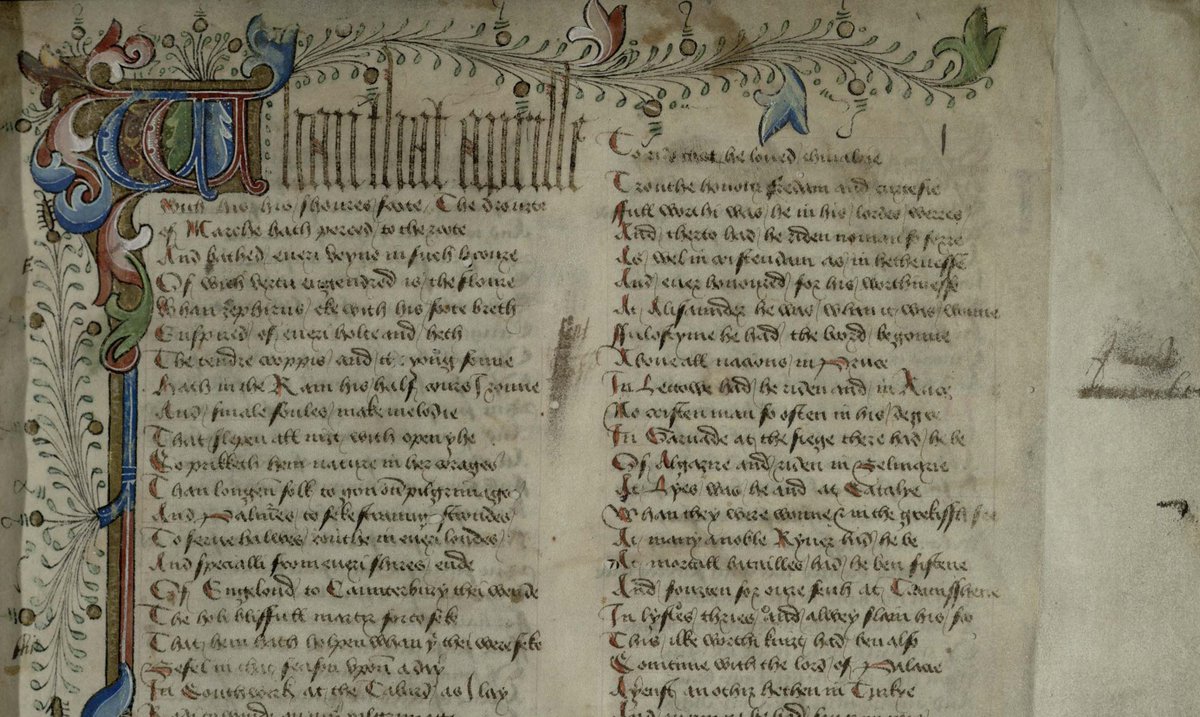 Whan that aprille
With his his shoures soote The drouȝt
of Marche hath perced to the roote
And bathed everi veyne in such licoure
Of wich vertu engendred is the floure
Whan zephirus eke with his soote breth
Enspired of everi holte and heth
The tendre croppis and the yong sonne
Hath in the Ram his half cours Ironne
And smale foules make melodie
That slepen all niȝt with open yhe
So prikketh hem nature in her corages
Than longen folk to gon on pilgrimages
And Palmeres to seke straunge strondes
To serve halwes couthe in everi londes
And specialli from everi shires ende
Of Engelond to Caunterbury thei wende
The holi blissfull martir for to seke
That hem hath holpen whan þt thei were seke
Befel in that seson upon a day
In Southwerk at the Tabard as I lay
To ride that he loved chivalrie
Trouthe honour fredam and curtesie
ffull worthi was he in his lordes werres
And therto had he riden no man so ferre
As wel in cristendam as in hethenesse
And ever honoured for his worthinesse
At Alisaunder he was whan it was wonne
ffuloftyme he had the bord begonne
Above all nacions in Pruce
In Lettowe had he riden and in Ruce
No cristen man so often in his degre
In Garnade at the siege there had he be
Of Algazire and riden in Belmarie
At Lyes was he and at Satalye
Whan they were wonne & in the grekissh see
At many a noble Ryver had he be
At mortall batailles had he ben fiftene
And fouȝten for oure feith at Tramassene
In lystes thries and alwey slain his foo
This ilke worthi kniȝt had ben also
Somtime with the lord of Palatie
Aȝenst anothir hethen in Turkye